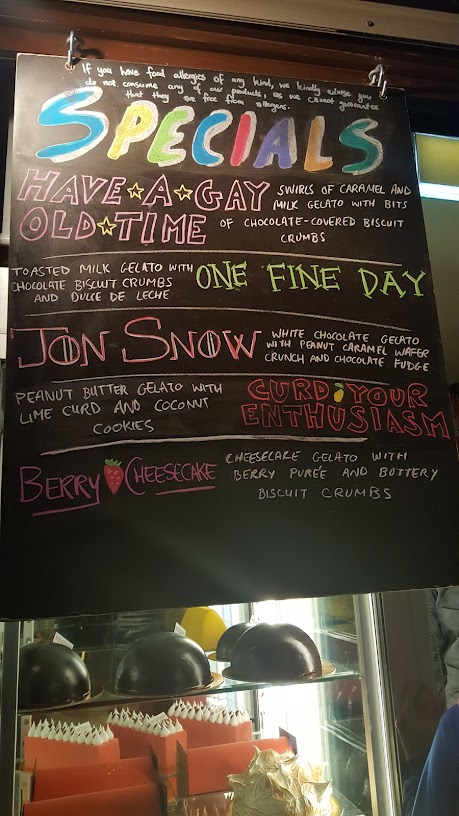 If you have food allergies of any kind, we kindly advise you
do not consume any of our products, as we cannot guarantee
that they are free from allergens.
SPECIALS
HAVE A GAY
OLD TIME
SWIRLS OF CARAMEL AND
MILK GELATO WITH BITS
OF CHOCOLATE-COVERED BISCUIT
CRUMBS
TOASTED MILK GELATO WITH
CHOCOLATE BISCUIT CRUMBS
AND DULCE DE LECHE
ONE FINE DAY
JON SNOW
WHITE CHOCOLATE GELATO
WITH PEANUT CARAMEL WAFER
CRUNCH AND CHOCOLATE FUDGE
PEANUT BUTTER GELATO WITH
LIME CURD AND COCONUT
COOKIES
CURB YOUR
ENTHUSIASM
BERRY CHEESECAKE
CHEESECAKE GELATO WITH
BERRY PURÉE AND BUTTERY
BISCUIT CRUMBS